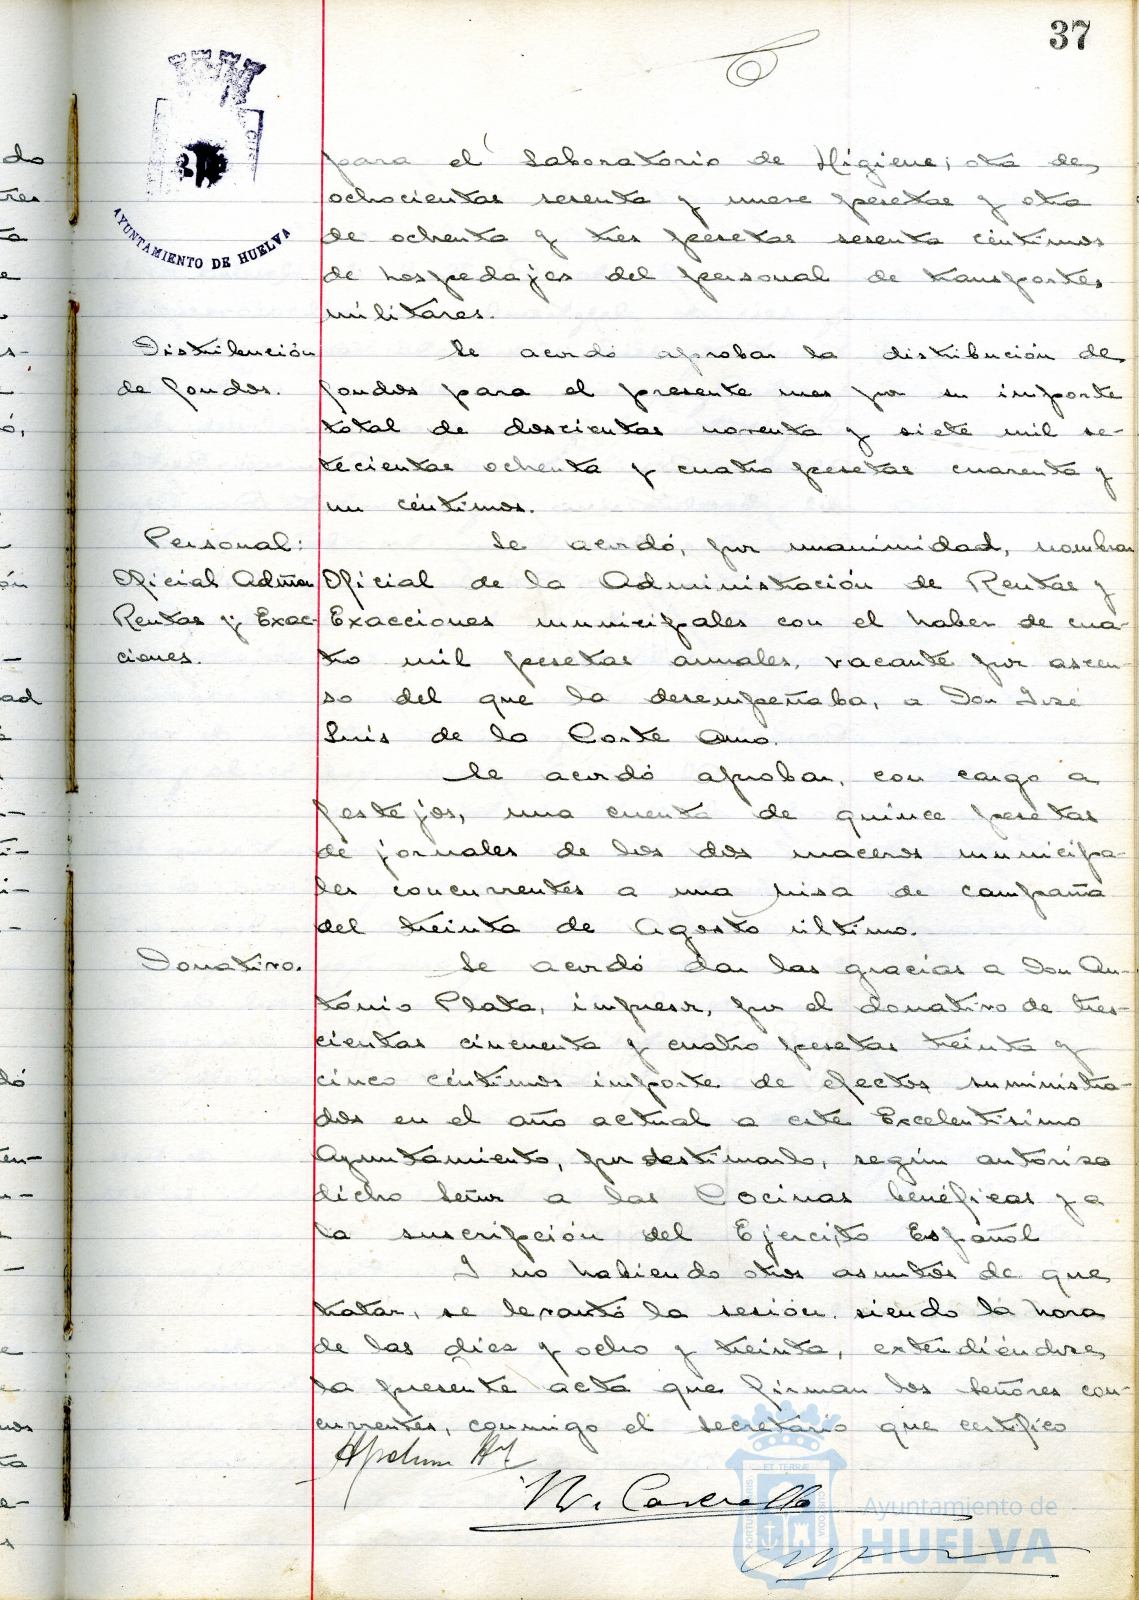 37
AYUNTAMIENTO DE HUELVA
para el Laboratorio de Higiene; otra de
ochocientas sesenta y nueve pesetas y otra
de ochenta y tres pesetas sesenta céntimos
de hospedajes del personal de transportes
militares.
Distribución
de fondos.
Se acordó aprobar la distribución de
fondos para el presente mes por su importe
total de doscientas noventa y siete mil se-
tecientas ochenta y cuatro pesetas cuarenta y
un céntimos.
Personal:
Oficial Admón
Rentas y Exac-
ciones.
Se acordó, por unanimidad, nombrar
Oficial de la Administración de Rentas y
Exacciones municipales con el haber de cua-
tro mil pesetas anuales, vacante por ascen-
so del que la desempeñaba, a Don José
Luis de la Corte Amo.
Se acordó aprobar, con cargo a
festejos, una cuenta de quince pesetas
de jornales de los dos maceros municipa-
les concurrentes a una misa de campaña
del treinta de Agosto último.
Donativo.
Se acordó dar las gracias a Don An-
tonio Plata, impresor, por el donativo de tres-
cientas cincuenta y cuatro pesetas treinta y
cinco céntimos importe de efectos suministra-
dos en el año actual a este Excelentísimo
Ayuntamiento, por destinarlo, según autoriza
dicho Señor a las Cocinas benéficas y a
la suscripción del Ejercito Español
I no habiendo otros asuntos de que
tratar, se levantó la sesión siendo la hora
de las diez y ocho y treinta, extendiéndose
la presente acta que firman los señores con-
currentes, conmigo el secretario que certifico
Ayuntamiento de
HUELVA